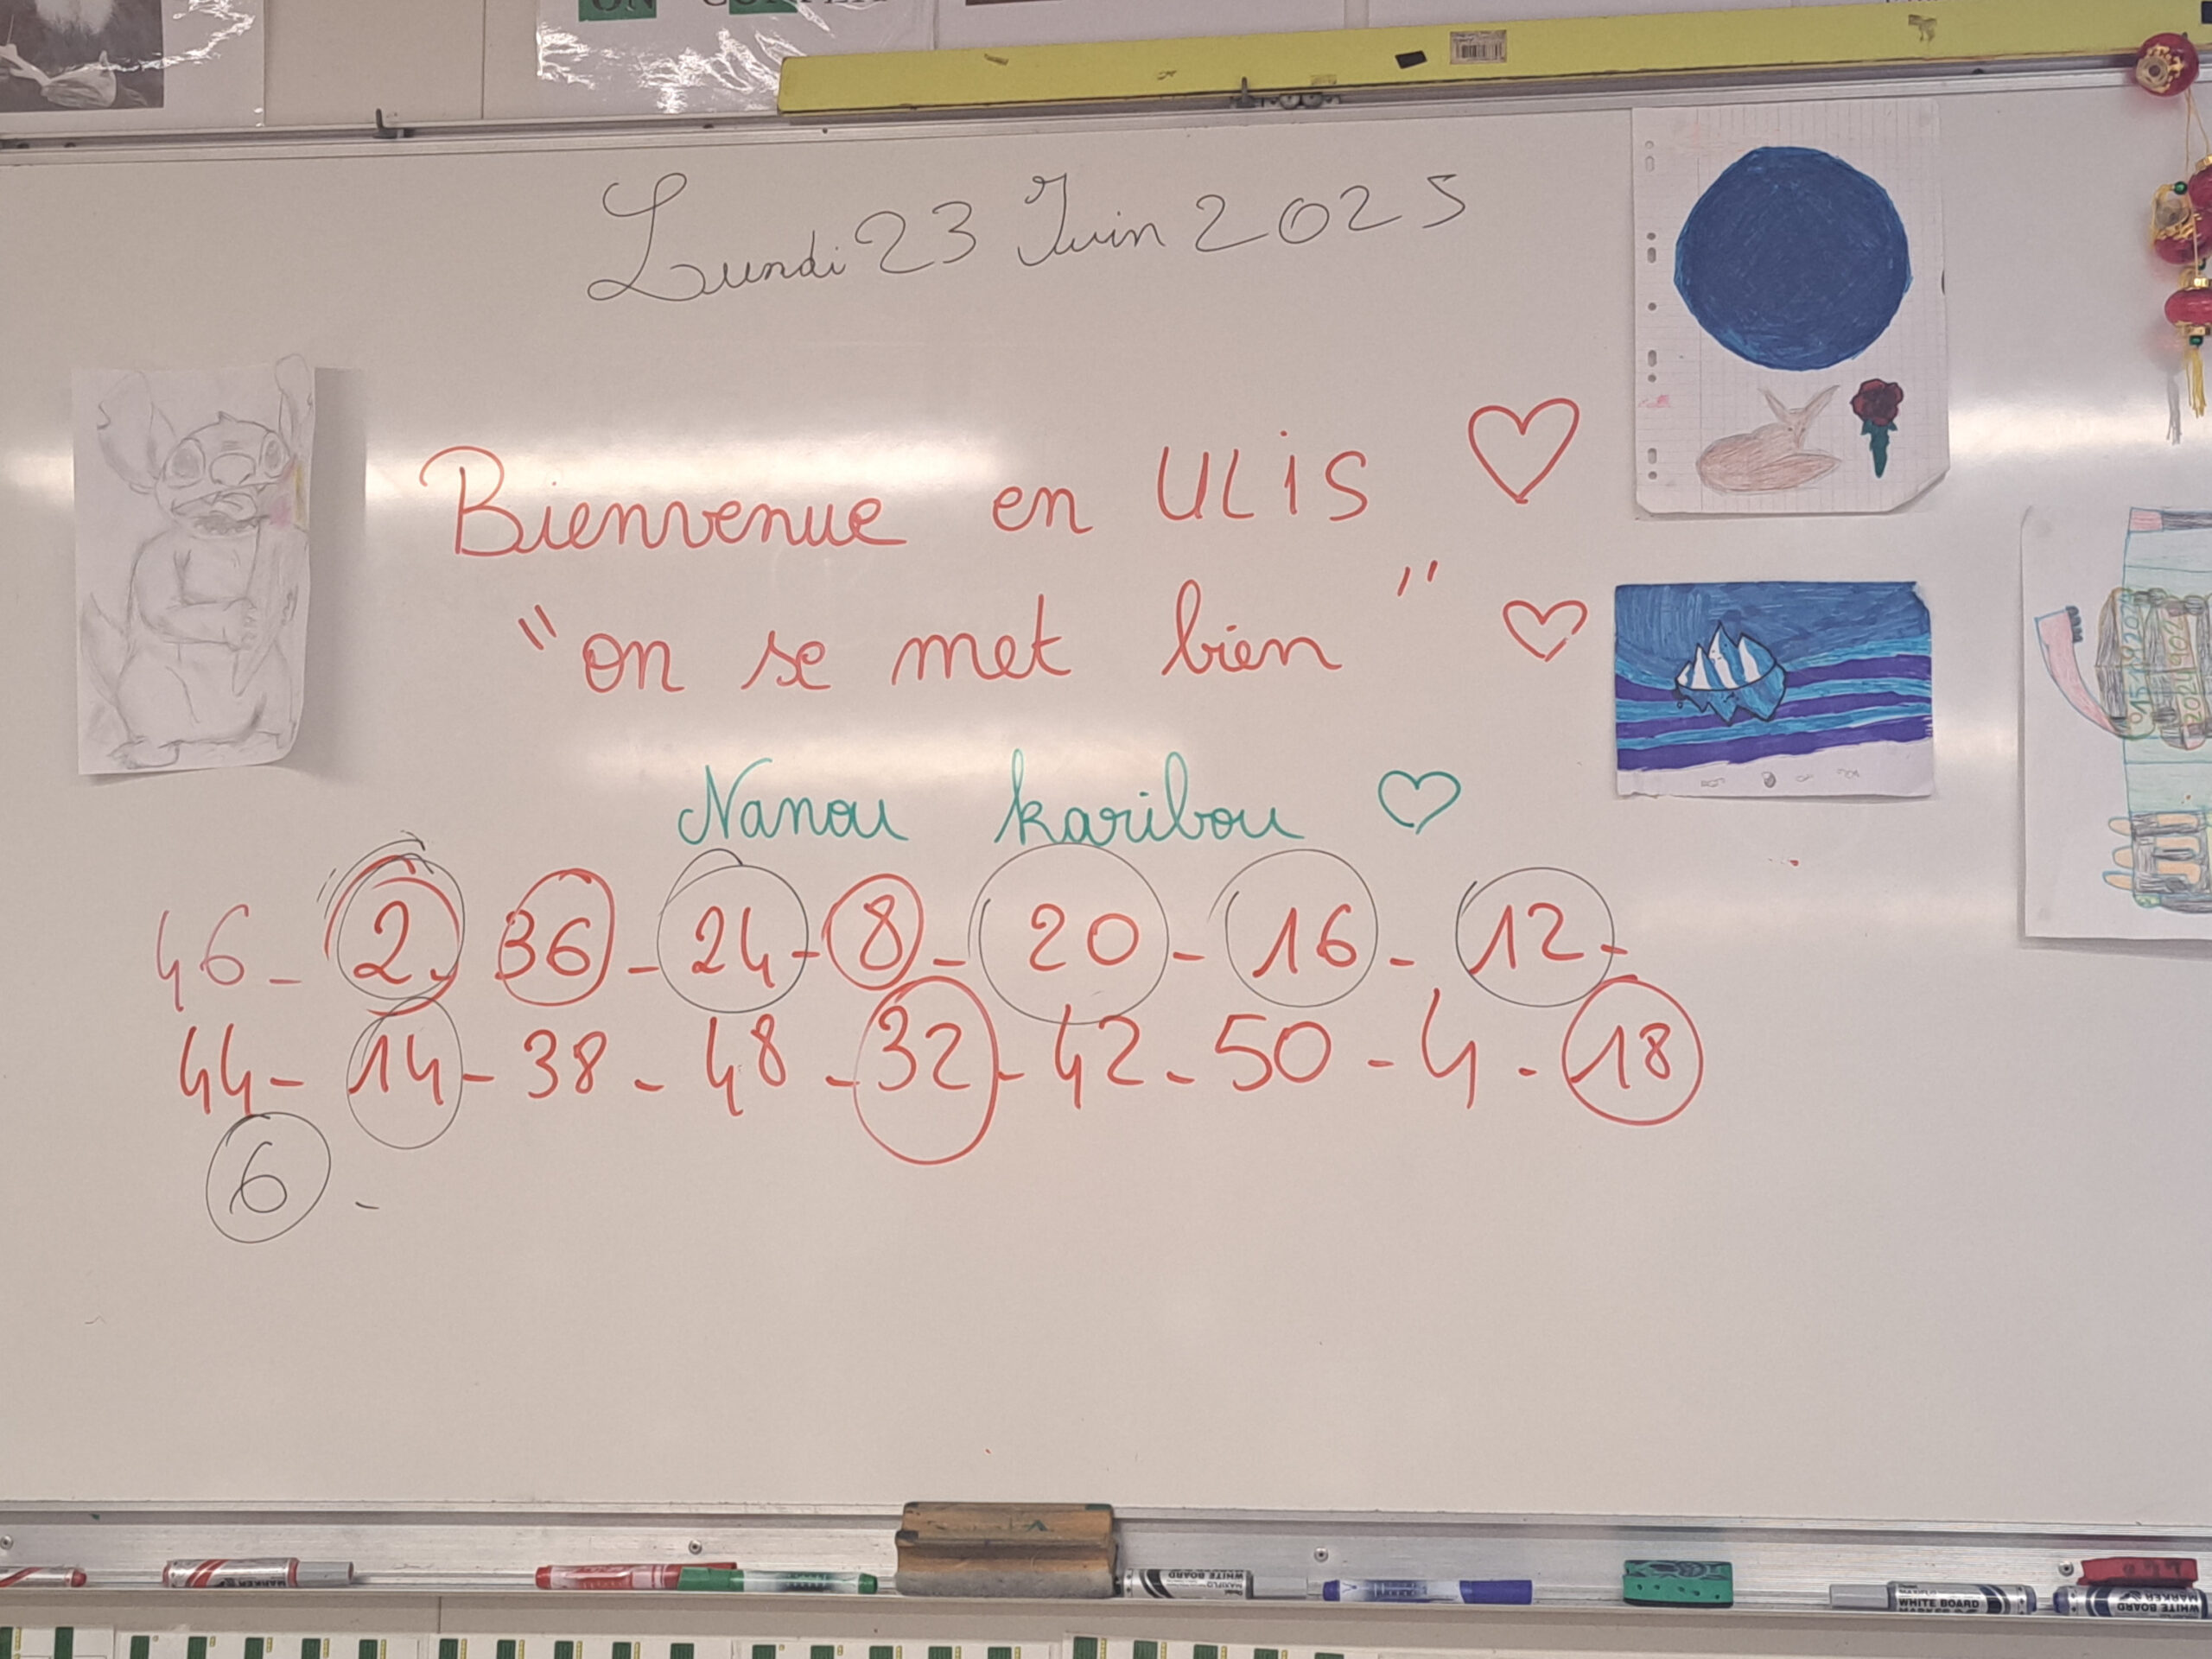 Lundi 23 Juin 2025
Bienvenue en ULIS ♡
"on se met bien" ♡
Nanou karibou ♡
46 - 2 - 36 - 24 - 8 - 20 - 16 - 12 -
44 - 14 - 38 - 48 - 32 - 42 - 50 - 4 - 18
6 -
MARKER
WHITE BOARD
WHITE BOARD
MARKER
WHITE BOARD
MARKER